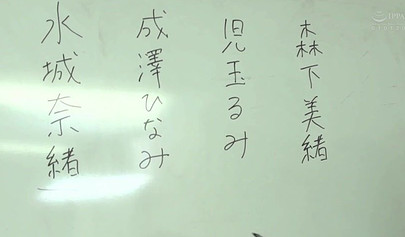 森下美緒
児玉るみ
成澤ひなみ
水城奈緒